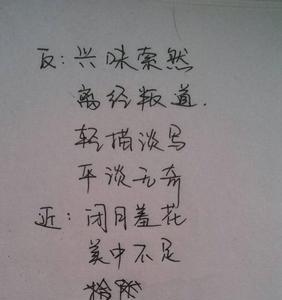 反：兴味索然
离经叛道.
轻描淡写
平淡无奇
近：闭月羞花
美中不足